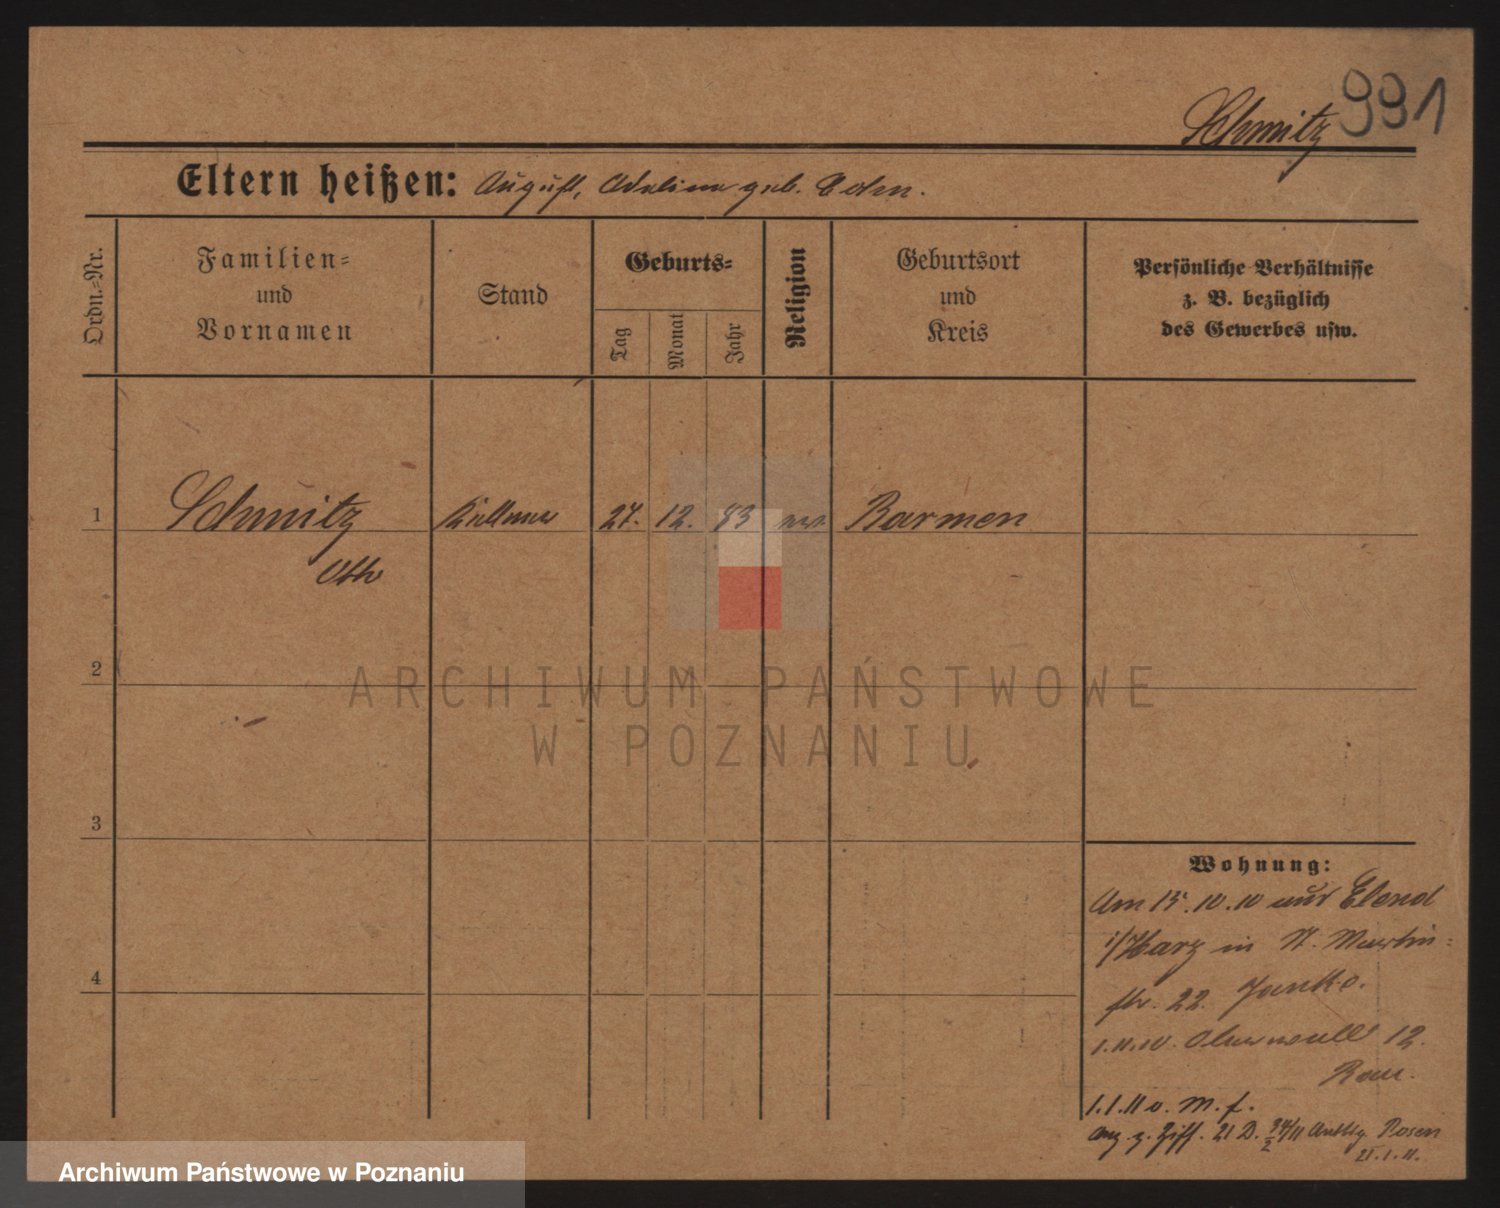 Schmitz 991
Eltern heißen: August, Adeline geb. Eden.
Ordn.=Nr.
Familien=
und
Vornamen
Stand
Geburts=
Tag
Monat
Jahr
Religion
Geburtsort
und
Kreis
Persönliche Verhältnisse
z. B. bezüglich
des Gewerbes usw.
1 Schmitz Kellner 27. 12. 83 ev. Barmen
Otto
2
3
4
Wohnung:
Am 15.10.10 aus Elend
i/Harz in St. Martin=
str. 22. Janko.
1.11.10.
12.
1.1.11 v. M. f.
z. Ziff. 21 D. Posen
21.1.11.
ARCHIWUM PAŃSTWOWE
W POZNANIU
Archiwum Państwowe w Poznaniu